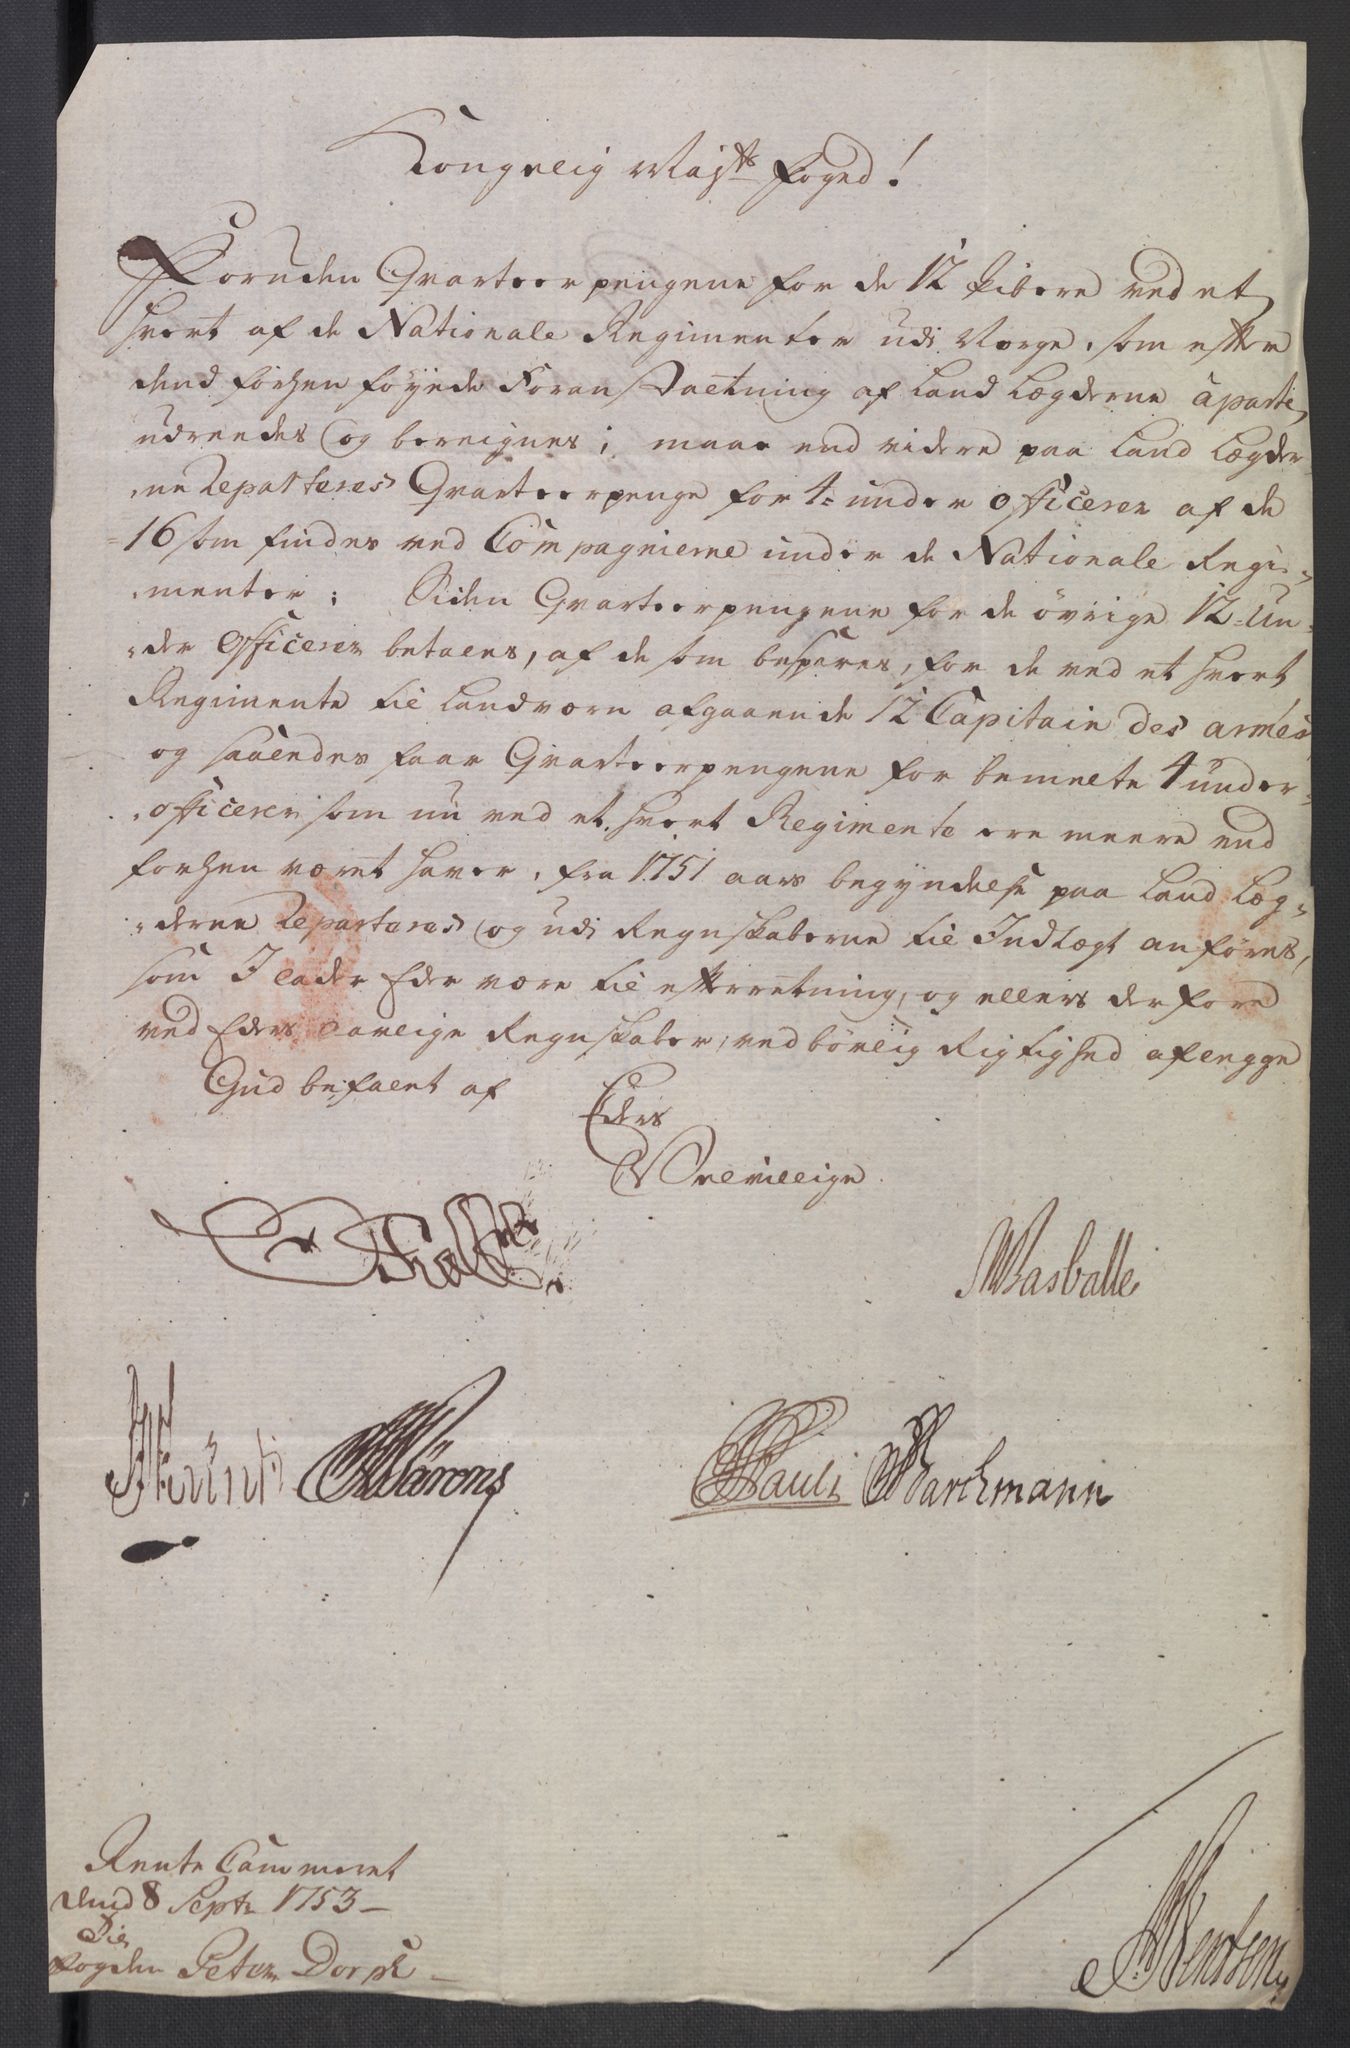 Kongelig Mayts Foged!
Foruden Qvarteerpengene for de 12 Pibere ved et
hvert af de Nationale Regimenter udi Norge, som efter
dend forhen föyede Foranstaltning af Land Lægderne àparte
udreedes og beregnes; maae end videre paa Land Lægder-
-ne Reparteres Qvarteerpenge for 4: under Officerer af de
16 som findes ved Compagnierne under de Nationale Regi-
-menter; Siden Qvarteerpengene for de övrige 12-Un-
-der Officerer betales, af de som bespares, for de ved et hvert
Regimente til Landværn afgaaende 12 Capitain des armes
og saaledes faar Qvarteerpengene for bemelte 4 under-
-officerer som nu ved et hvert Regimente ere meere end
forhen været haver, fra 1751 aars begyndelse paa Land Læg-
-derne Reparteres og udi Regnskaberne til Indtægt anföres,
som I lader Eder være til efterretning, og ellers derfore
ved Eders aarlige Regnskaber, ved börlig Rigtighed aflegge
Gud befalet af
Eders
Velvillige
Wasballe
Wärens
Pauli Barchmann
Rente Cammeret
dend 8 Septr 1753-
Til
Fogden Peter Dorph
Wentsen